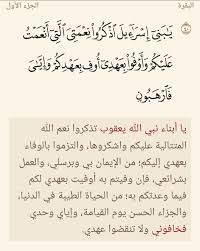 البقرة
الجزء الأول
يَٰبَنِيٓ إِسۡرَٰٓءِيلَ ٱذۡكُرُواْ نِعۡمَتِيَ ٱلَّتِيٓ أَنۡعَمۡتُ
عَلَيۡكُمۡ وَأَوۡفُواْ بِعَهۡدِيٓ أُوفِ بِعَهۡدِكُمۡ وَإِيَّٰيَ
فَٱرۡهَبُونِ
يا أبناء نبي الله يعقوب تذكروا نعم الله
المتتالية عليكم واشكروها، والتزموا بالوفاء
بعهدي إليكم؛ من الإيمان بي وبرسلي، والعمل
بشرائعي، فإن وفيتم به أوفيت بعهدي لكم
فيما وعدتكم به؛ من الحياة الطيبة في الدنيا،
والجزاء الحسن يوم القيامة، وإياي وحدي
فخافوني ولا تنقضوا عهدي.